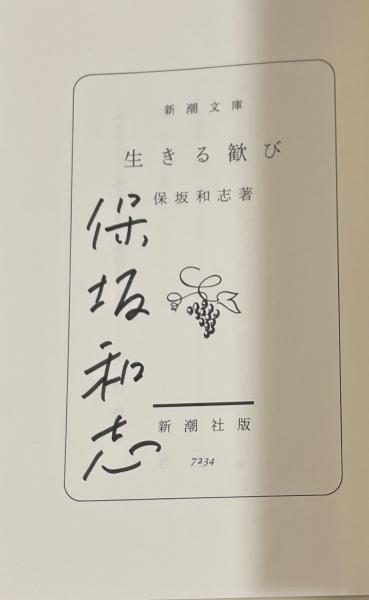 新潮文庫
生きる歓び
保坂和志著
保坂和志
新潮社版
7234